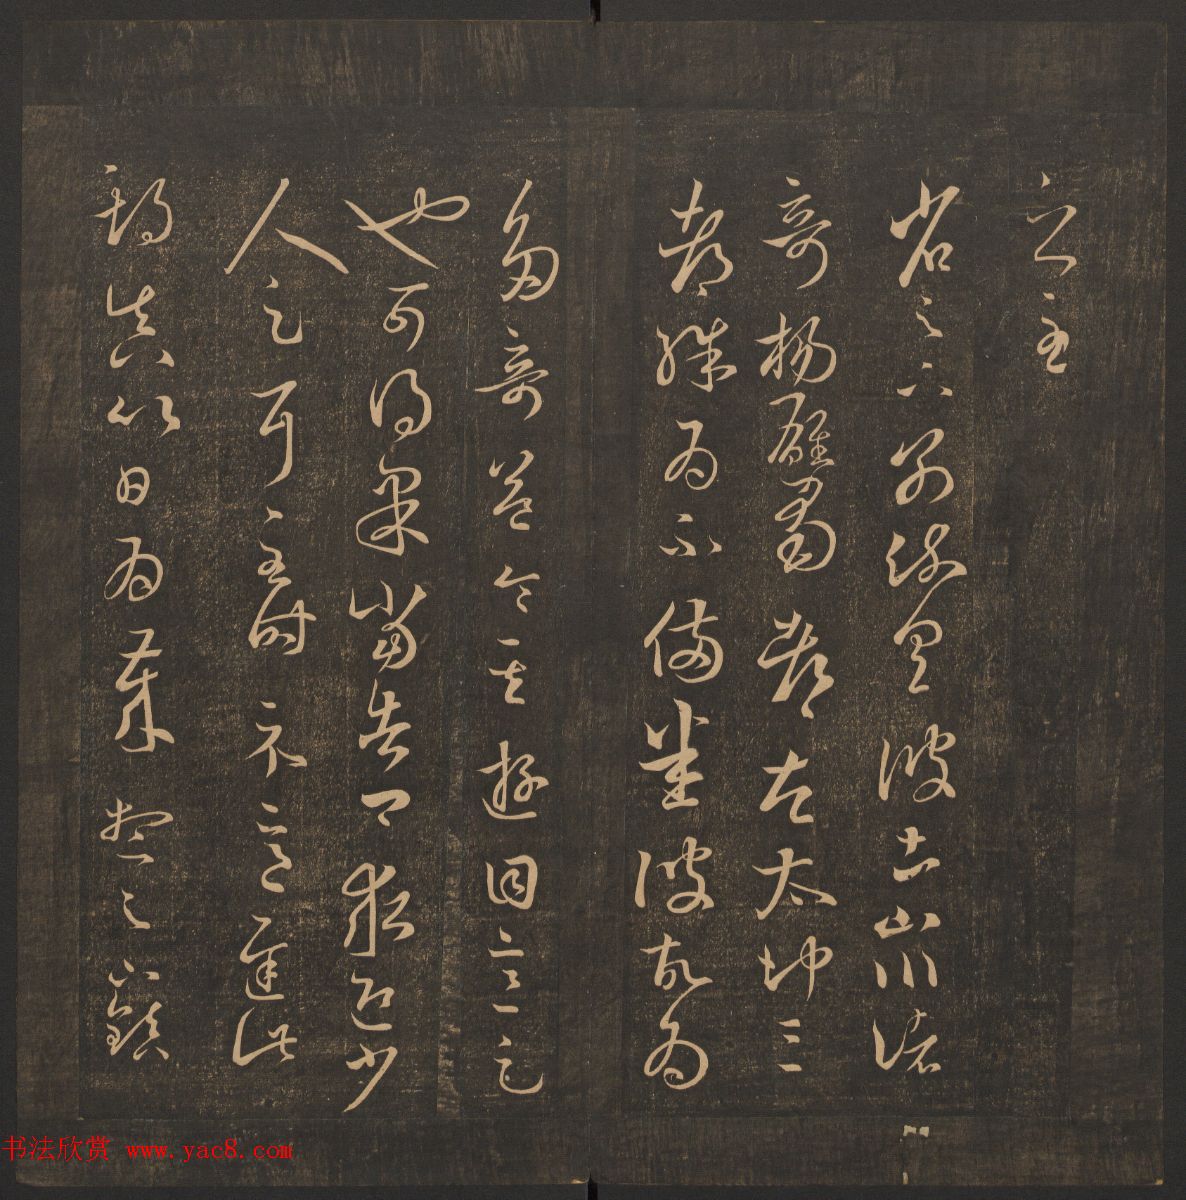 之至
省足下别疏具彼土山川诸
奇杨雄蜀都左太冲三
都殊为不备悉彼故为
多奇益令其游目意足
也可得果当告卿求迎少
人足耳至时示意迟此
期真以日为岁想足下镇
书法欣赏 www.yac8.com